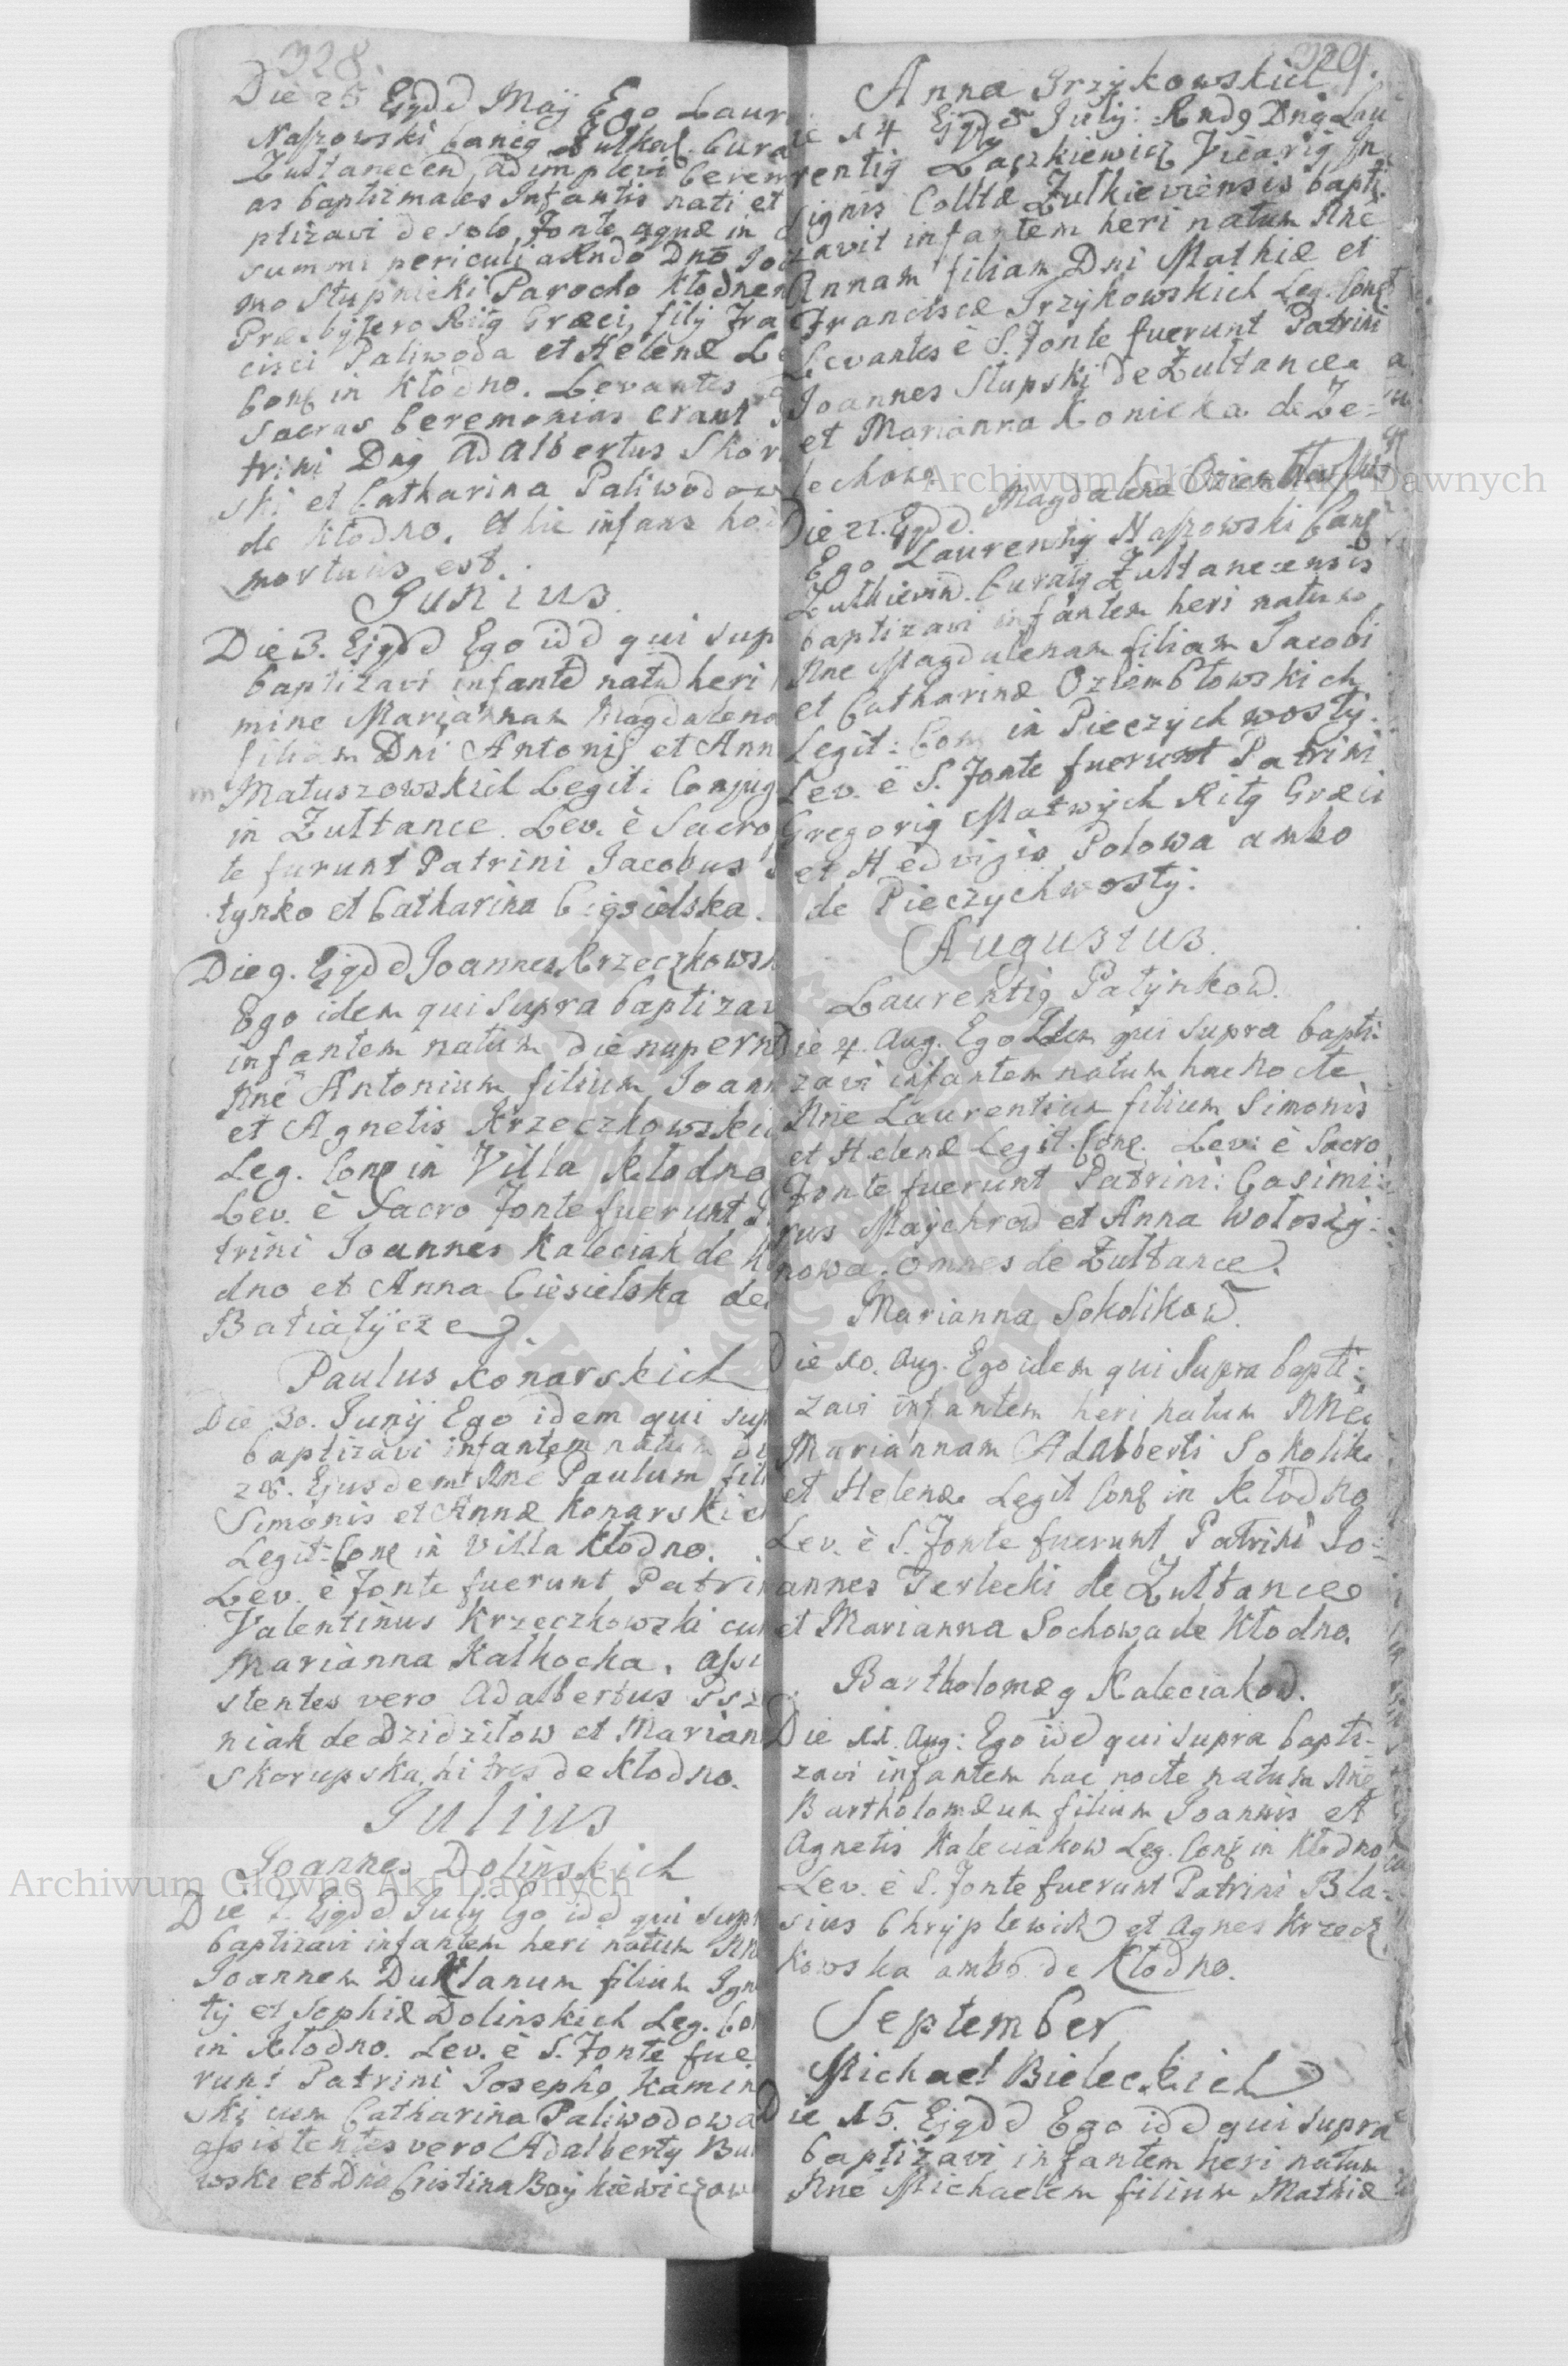 328.
Die 25 Ejgdd Maij Ego Laur
Naszowski Cancg Zulkg. Cura
Zułtanecen, adimplevi Cerem
as baptizmales Infantis nati et
ptizavi de solo Fonte aquæ in
summi periculi a Rndo Dno Joi
mo Stupnicki Parocho Kłodnen
Præsbytero Ritg Græci, filij Fra
cisci Paliwoda et Helenæ Le
Conj in Kłodno. Levantes
Sacras Ceremonias erant
trini Dng Adalbertus Skor
ski et Catharina Paliwodow
de Kłodno. et hic infans ho
mortuus est.
Junius
Die 3. Ejgdd Ego idd qui sup
baptizavi infantd natd heri
mine Mariannam Magdalena
filiam Dni Antonij et Ann
Matuszowskich Legit: Conjug
in Zułtance. Lev. è Sacro
te furunt Patrini Jacobus
tynko et Catharina Cigsielska.
Die 9. Ejgdd Joannes Krzeczkowsk
Ego idem qui supra baptizav
infantem natum die nupern
Nne Antonium filium Joann
et Agnetis Krzeczkowskic
Leg. Conj in Villa Kłodno
Lev. è Sacro Fonte fuerunt
trini Joannes Kaleciak de
dno et Anna Ciesielska de
Batiatycze
Paulus Konarskich
Die 30. Junij Ego idem qui sup
baptizavi infantem natum di
28. Ejusdem Nne Paulum fili
Simonis et Annæ Konarskic
Legit: Conj in Villa Kłodno.
Lev. è Fonte fuerunt Patri
Valentinus Krzeczkowski cu
Marianna Kałkocka, assi
stentes vero Adalbertus Psz
niak de Dzidziłow et Marian
Skorupska, hi tres de Kłodno.
Julius
Joannes Dolinskich
Die 7. Ejgdd Julij Ego idd qui sup
baptizavi infantem heri natum Nn
Joannem Duklanum filium Ign
tij et Sophiæ Dolinskich Leg. Co
in Kłodno. Lev. è S. Fonte fue
runt Patrini Josephg Kamin
ski cum Catharina Paliwodowa
assistentes vero Adalbertg Bu
wski et Dna Cristina Bojkiewiczow
329.
Anna Grzykowskich
ie 14 Ejgdd Julij: Rndg Dng Lau
rentig Laszkiewicz Vicarig In
signis Colltæ Zułkieviensis bapti
zavit infantem heri natum Nne
Annam filiam Dni Mathiæ et
Franciscæ Grzykowskich Leg. Conj
Levantes è S. Fonte fuerunt Patrini
Joannes Stupski de Zułtance
et Marianna Konicka de Ze=
lechow
Magdalena Oziembłowskich
Die 21. Ejgdd.
Ego Laurentig Naszowski Canc
Zulkievien. Curatg Zułtanecensis
baptizavi infantem heri natum
Nne Magdalenam filiam Jacobi
et Catharinæ Oziembłowskich
Legit: Conj in Pieczychwosty.
Lev. è S. Fonte fuerunt Patrini
Gregorig Matwijch Ritg Græci
et Hedvigis Polowa ambo
de Pieczychwosty.
Augustus.
Laurentig Patynkow.
Die 4. Aug. Ego Idem qui supra bapti:
zavi infantem natum hac Nocte
Nne Laurentium filium Simonis
et Helenæ Legit. Conj. Lev: è Sacro
Fonte fuerunt Patrini: Casimi:
rus Majchrad et Anna Wołoszy:
nowa. omnes de Zułtance.
Marianna Sokolikow.
Die 10. Aug. Ego idem qui supra bapti:
zavi infantem heri natum Nne
Mariannam Adalberti Sokolik
et Helenæ Legit Conj in Kłodno
Lev. è S. Fonte fuerunt Patrini Jo=
annes Terlecki de Zułtance
et Marianna Sochowa de Kłodno.
Bartholomæg Kaleciakow.
Die 11. Aug: Ego idd qui supra bapti-
zavi infantem hac nocte natum Nne
Bartholomæum filium Joannis et
Agnetis Kaleciakow Leg. Conj in Kłodno
Lev. è S. Fonte fuerunt Patrini Bla-
sius Chryplewicz et Agnes Krzecz
kowska ambo de Kłodno.
September
Michael Bieleckich
Die 15. Ejgdd Ego idd qui supra
baptizavi infantem heri natum
Nne Michaelem filium Mathiæ
Archiwum Główne Akt Dawnych
Archiwum Główne Akt Dawnych